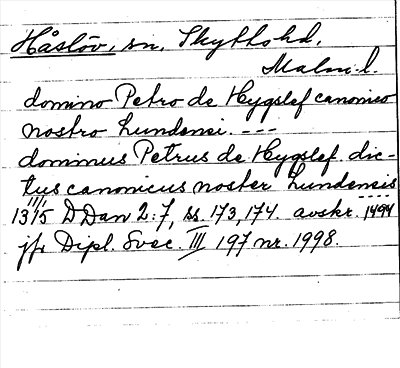 Håslöv, sn, Skytts hd,
Malm. l.
domino Petro de Hygslef canonico
nostro Lundensi. ---
dominus Petrus de Hygslef dic-
tus canonicus noster Lundensis
11/1 1315 DDan 2:7, ss. 173, 174. avskr. 1494
jfr Dipl. Svec. III 197 nr. 1998.